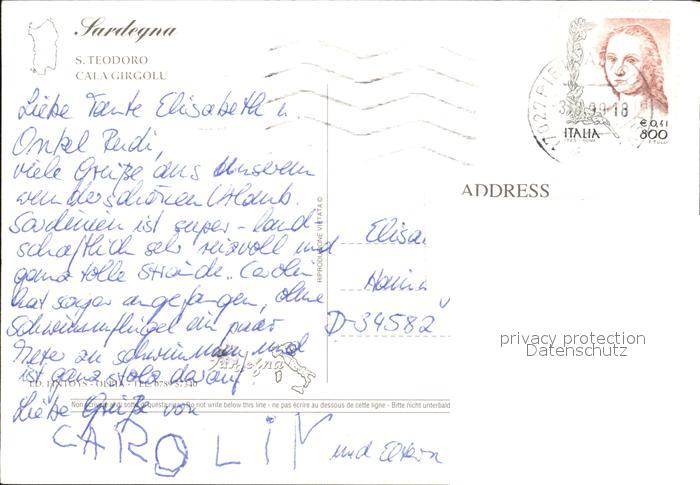 Sardegna
S. TEODORO
CALA GIRGOLU
Liebe Tante Elisabeth u.
Onkel Rudi,
viele Grüße aus unserem
wunderschönen Urlaub.
Sardinien ist super - land
schaftlich sehr reizvoll und
ganz tolle Strände. Carolin
hat sogar angefangen, ohne
Schwimmflügel ein paar
Meter zu schwimmen und
ist ganz stolz darauf.
Liebe Grüße von
CAROLIN und Eltern
ITALIA
€ 0,41
800
ADDRESS
Elisa
D-34582
privacy protection
Datenschutz
RIPRODUZIONE VIETATA ©
Sardegna
Do not write below this line - ne pas écrire au dessous de cette ligne - Bitte nicht unterhalb